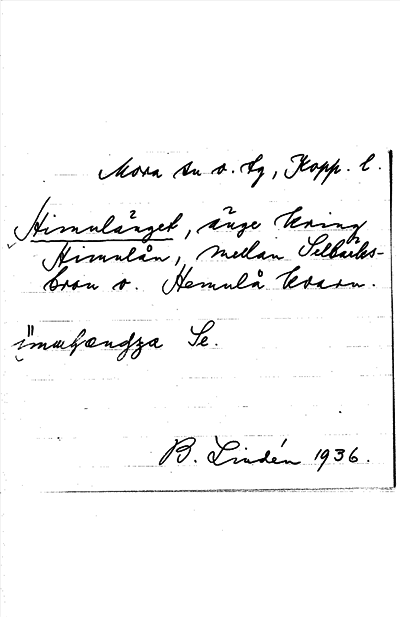 Mora sn o. tg, Kopp. l.
Himulänget, änge kring
Himulån, mellan Selbäcks-
bron o. Hemulå kvarn.
Se.
B. Lindén 1936.